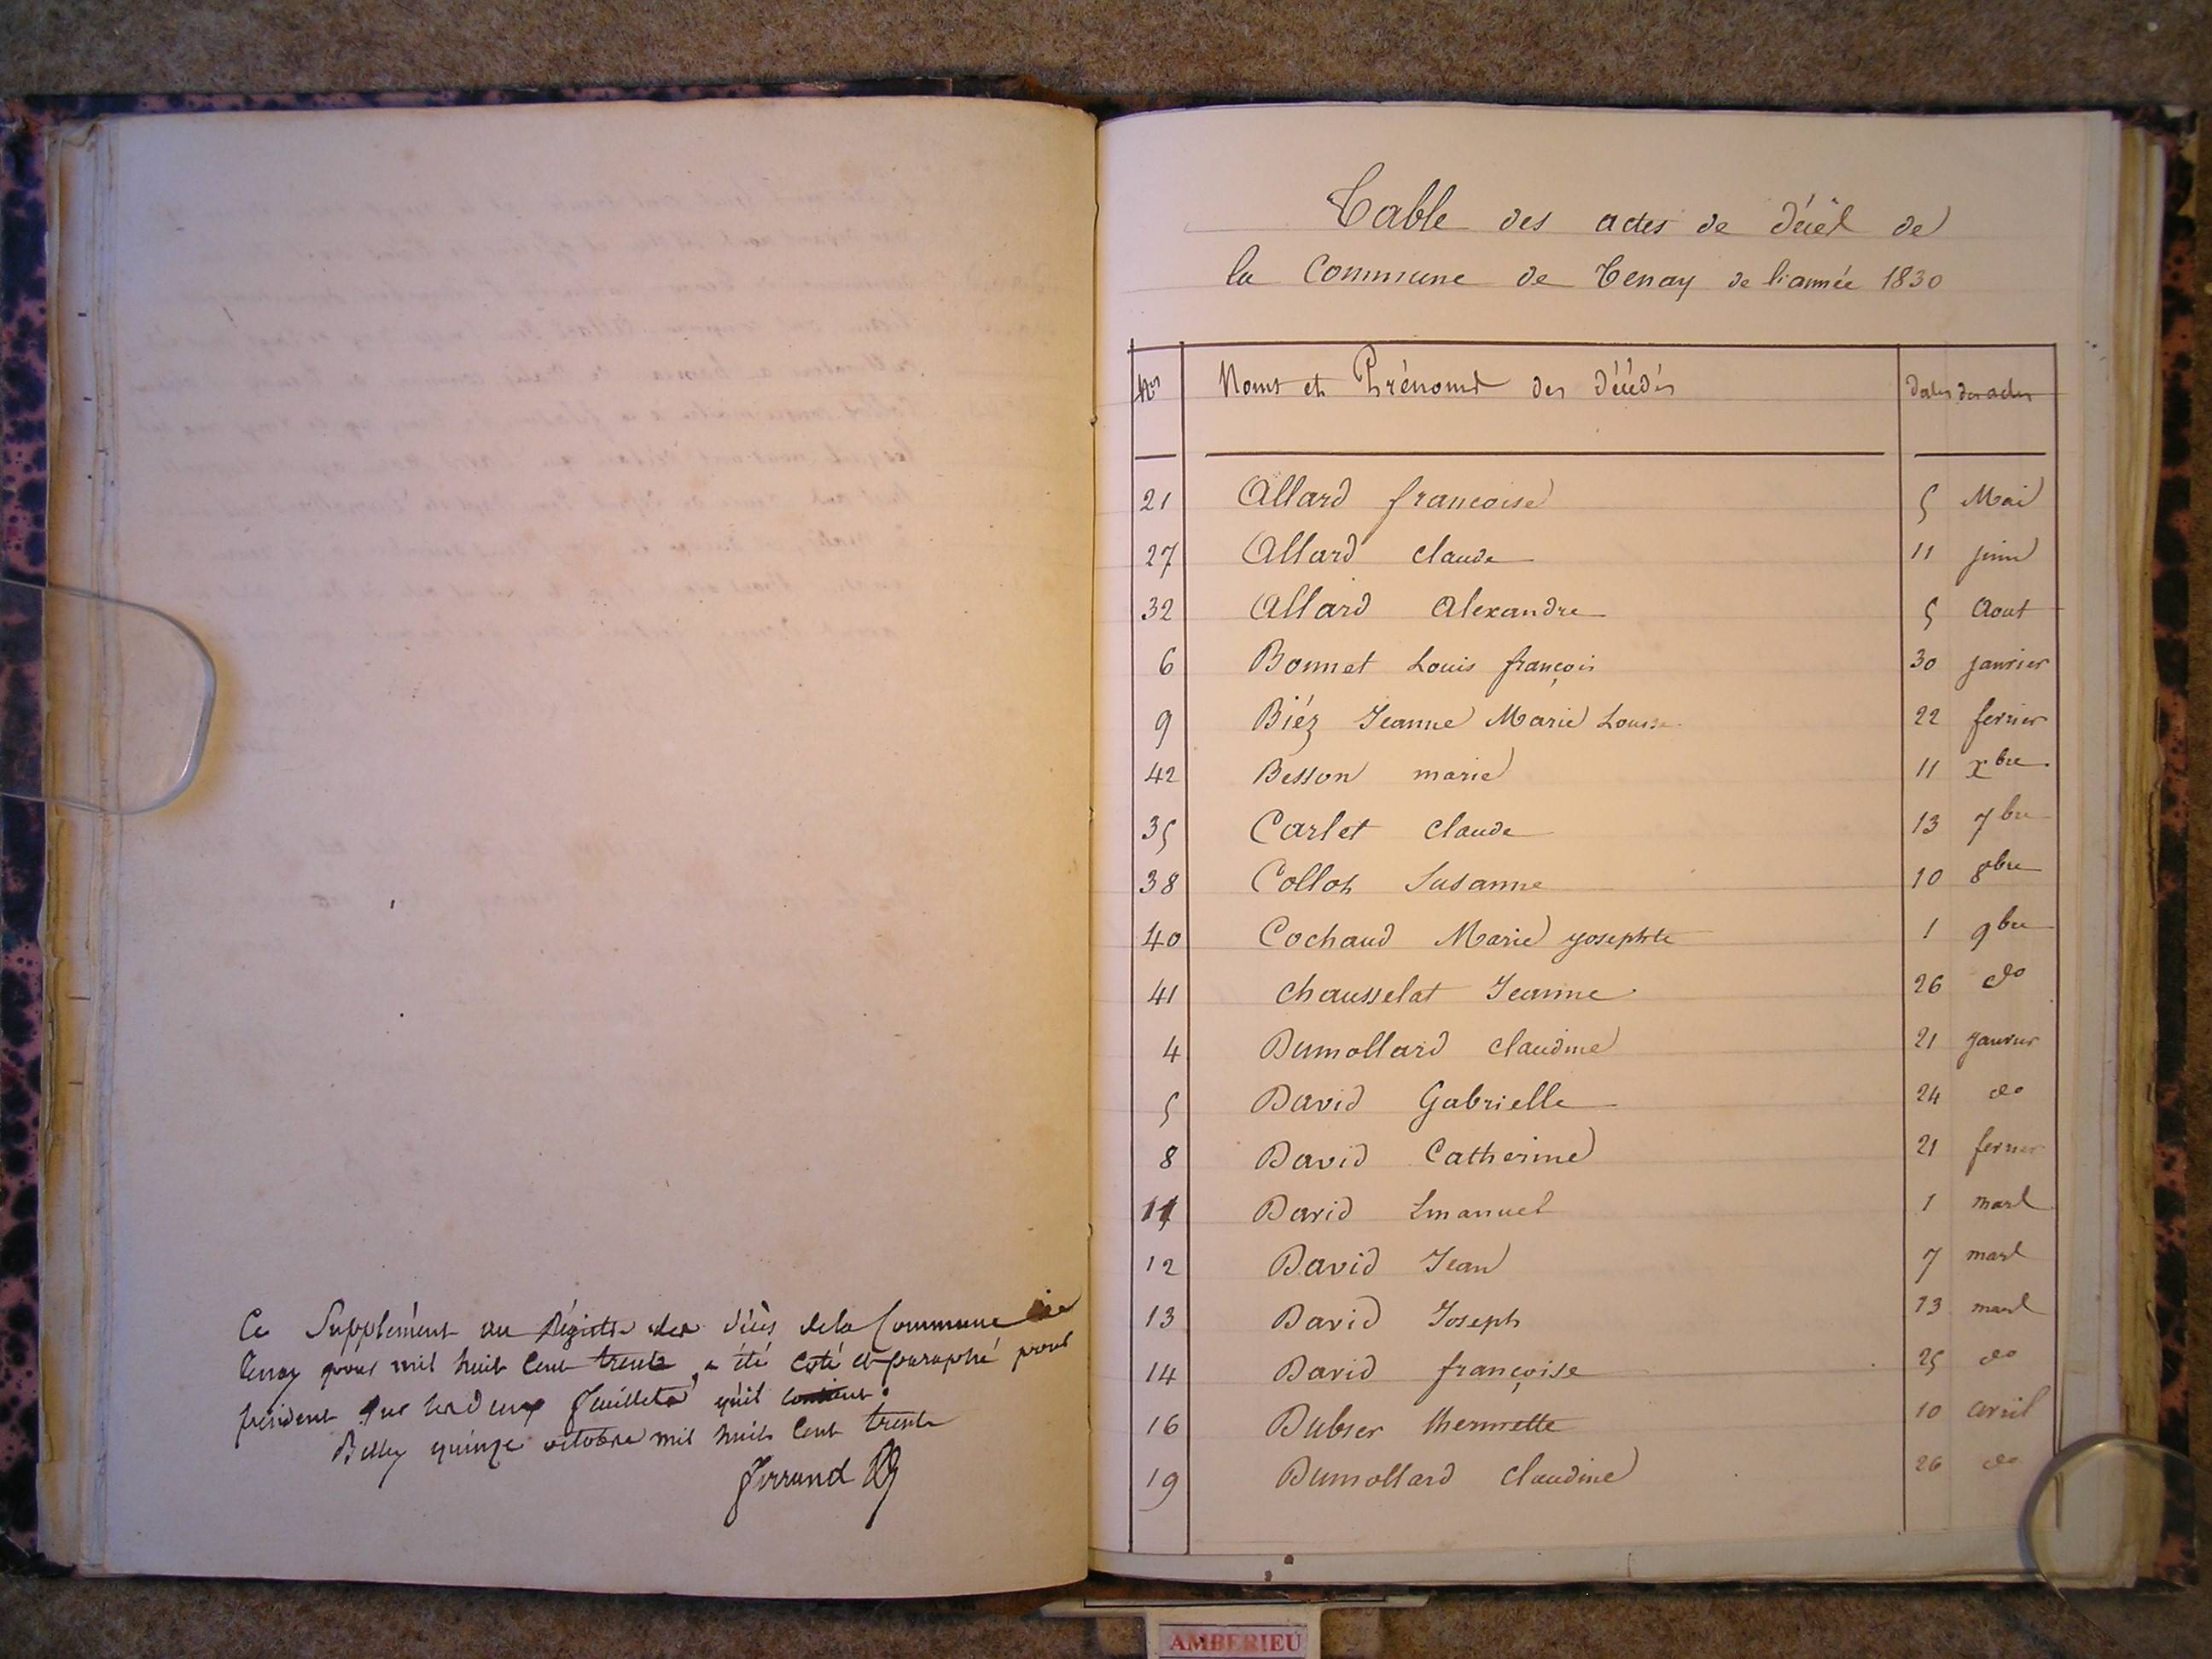 Ce Supplément au Régistre des décès dela Commune de
Tenay pour mil huit Cent trente, a été coté et paraphé pour
président sur les deux feuillets qu'il contient.
Belley quinze octobre mil huit Cent trente
Ferrand
Table des actes de décès de
la Commune de Tenay de l'année 1830
Nos Noms et Prénoms des décédés dates des actes
21 Allard francoise 5 Mai
27 Allard Claude 11 juin
32 Allard Alexandre 5 Aout
6 Bonnet Louis françois 30 janvier
9 Biéz Jeanne Marie Louise 22 fevrier
42 Besson marie 11 xbre
35 Carlet Claude 13 7bre
38 Collot Susanne 10 8bre
40 Cochaud Marie josephte 1 9bre
41 Chausselat Jeanne 26 do
4 Dumollard Claudine 21 janvier
5 David Gabrielle 24 do
8 David Catherine 21 fevrier
11 David Emanuel 1 mars
12 David Jean 7 mars
13 David Joseph 13 mars
14 David françoise 25 do
16 Dubier 10 avril
19 Dumollard Claudine 26 do
AMBERIEU